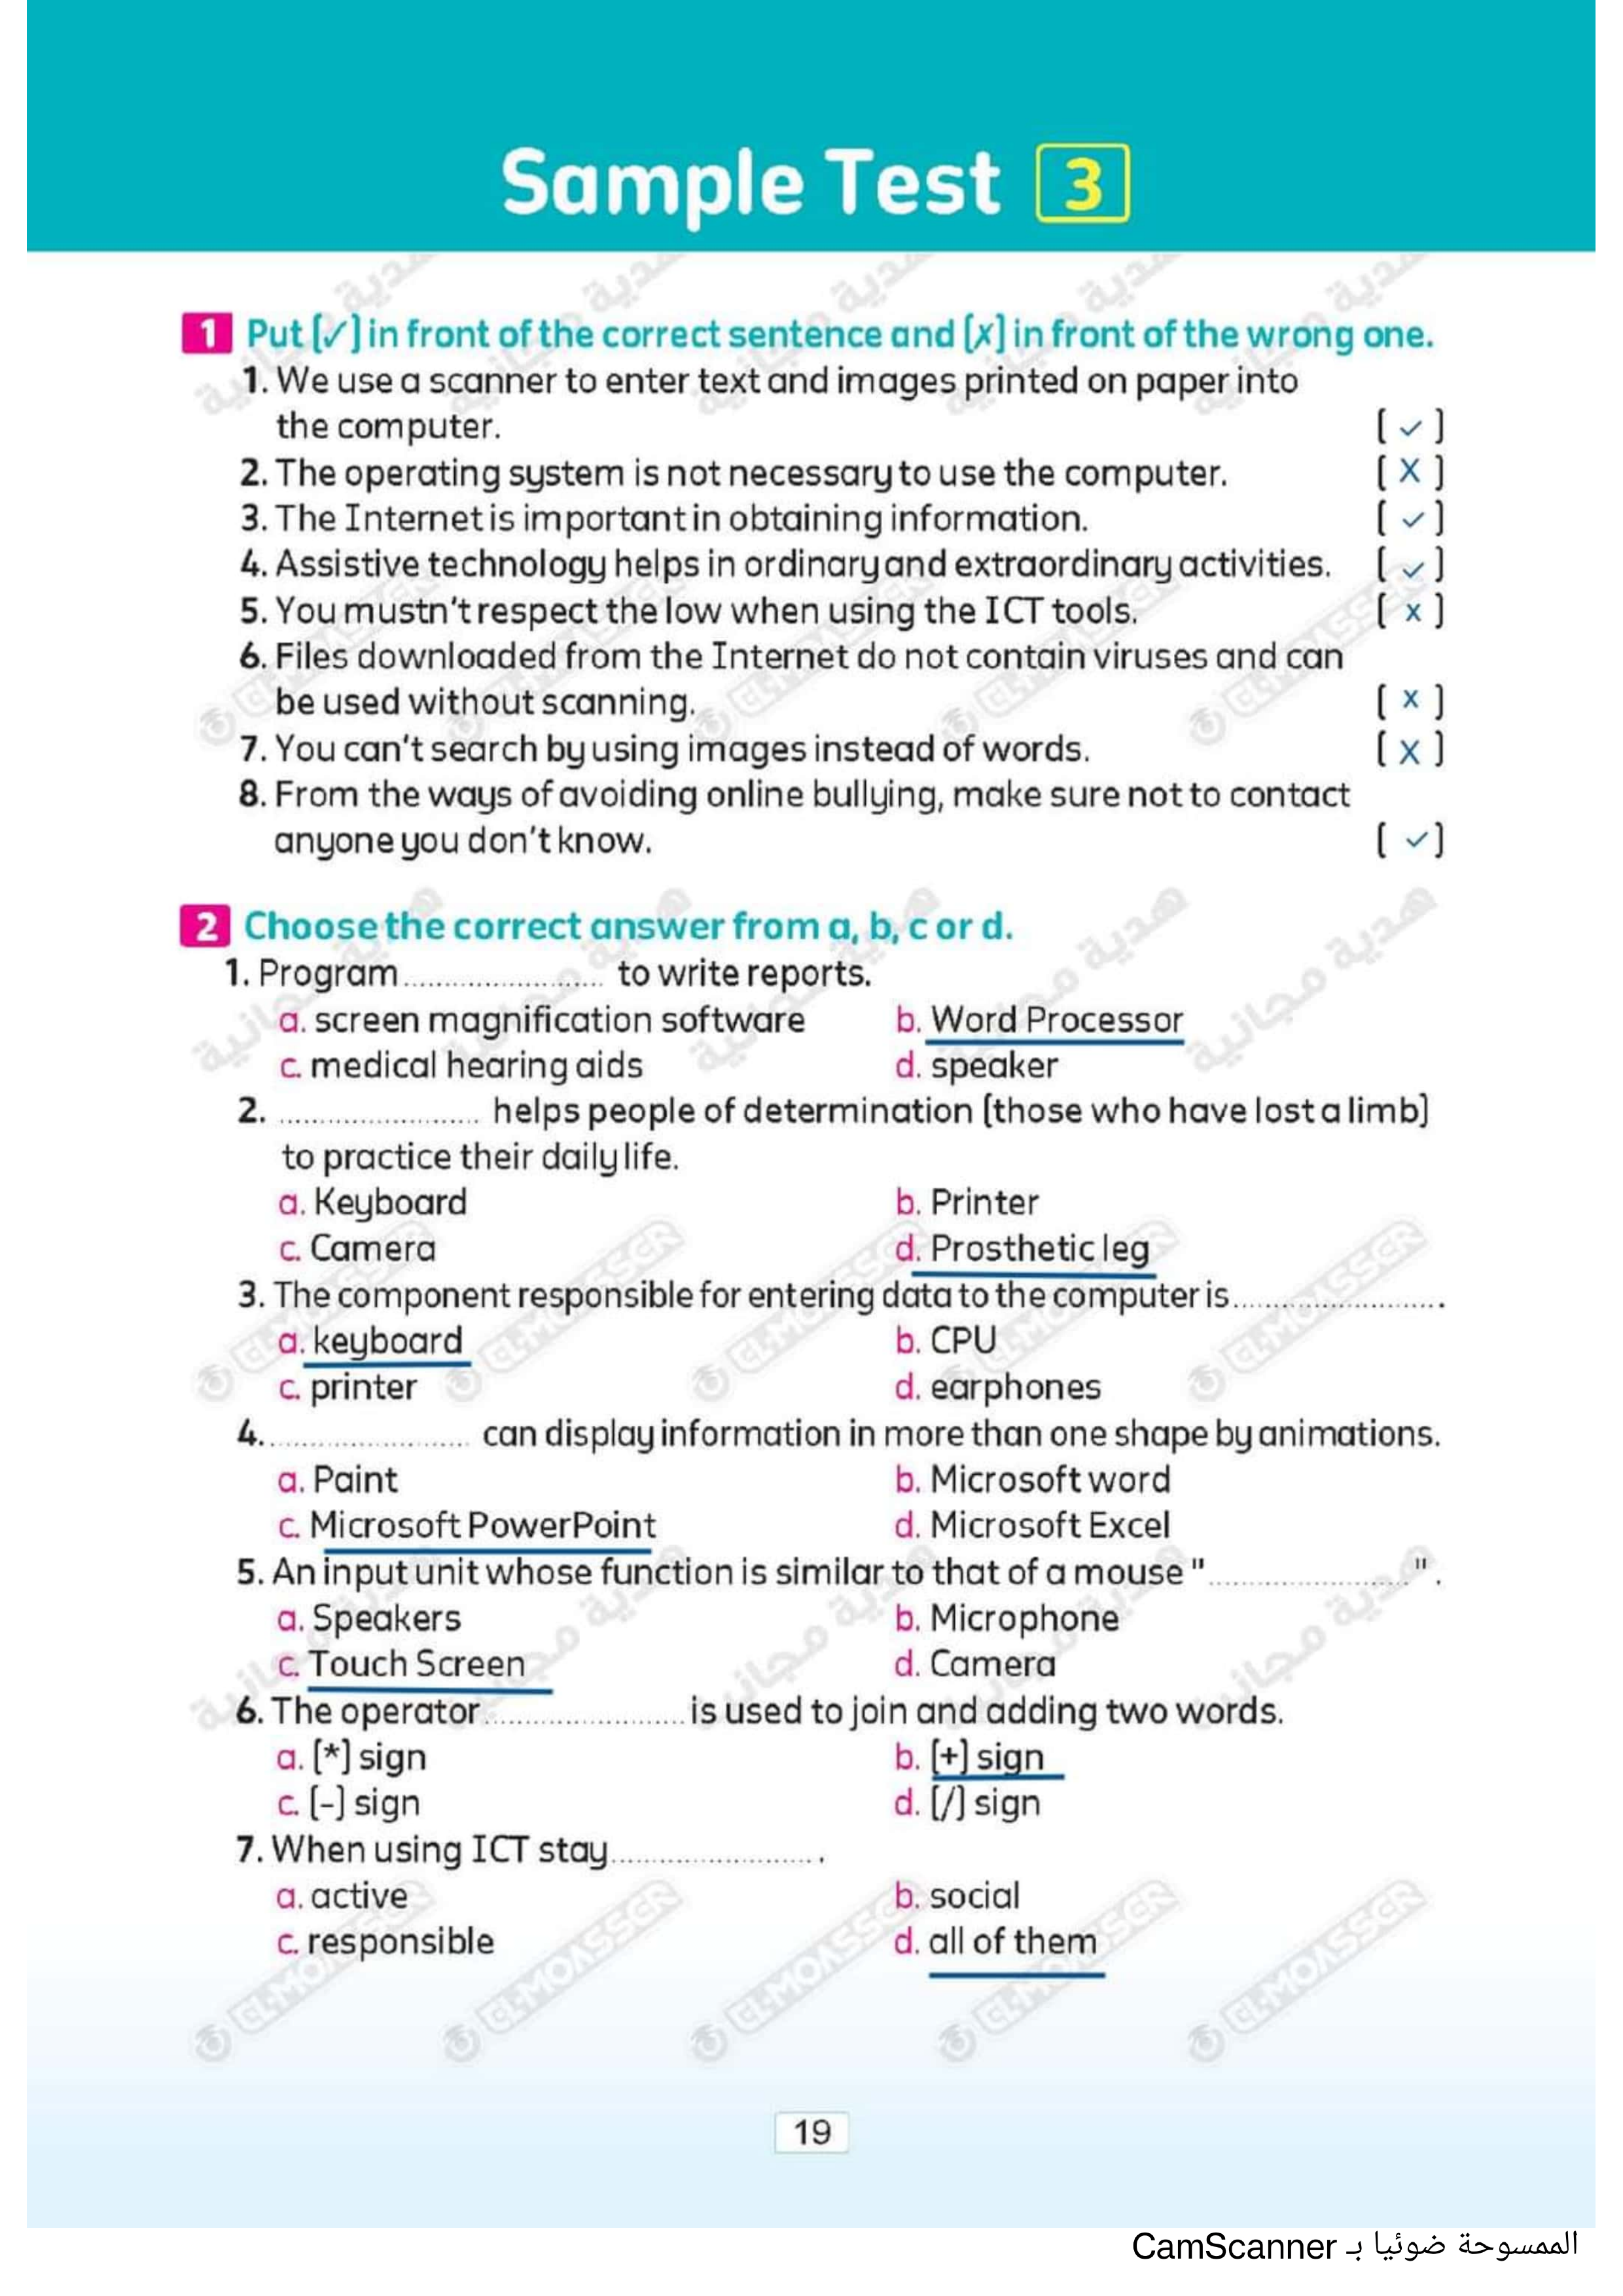 Sample Test 3
1 Put [✓] in front of the correct sentence and [✗] in front of the wrong one.
1. We use a scanner to enter text and images printed on paper into
the computer. [ ✓ ]
2. The operating system is not necessary to use the computer. [ X ]
3. The Internet is important in obtaining information. [ ✓ ]
4. Assistive technology helps in ordinary and extraordinary activities. [ ✓ ]
5. You mustn't respect the low when using the ICT tools. [ x ]
6. Files downloaded from the Internet do not contain viruses and can
be used without scanning. [ x ]
7. You can't search by using images instead of words. [ X ]
8. From the ways of avoiding online bullying, make sure not to contact
anyone you don't know. [ ✓ ]
2 Choose the correct answer from a, b, c or d.
1. Program ........................ to write reports.
a. screen magnification software b. Word Processor
c. medical hearing aids d. speaker
2. ........................ helps people of determination [those who have lost a limb]
to practice their daily life.
a. Keyboard b. Printer
c. Camera d. Prosthetic leg
3. The component responsible for entering data to the computer is ........................ .
a. keyboard b. CPU
c. printer d. earphones
4. ........................ can display information in more than one shape by animations.
a. Paint b. Microsoft word
c. Microsoft PowerPoint d. Microsoft Excel
5. An input unit whose function is similar to that of a mouse "........................" .
a. Speakers b. Microphone
c. Touch Screen d. Camera
6. The operator ........................ is used to join and adding two words.
a. [*] sign b. [+] sign
c. [-] sign d. [/] sign
7. When using ICT stay ........................ .
a. active b. social
c. responsible d. all of them
19
الممسوحة ضوئيا بـ CamScanner